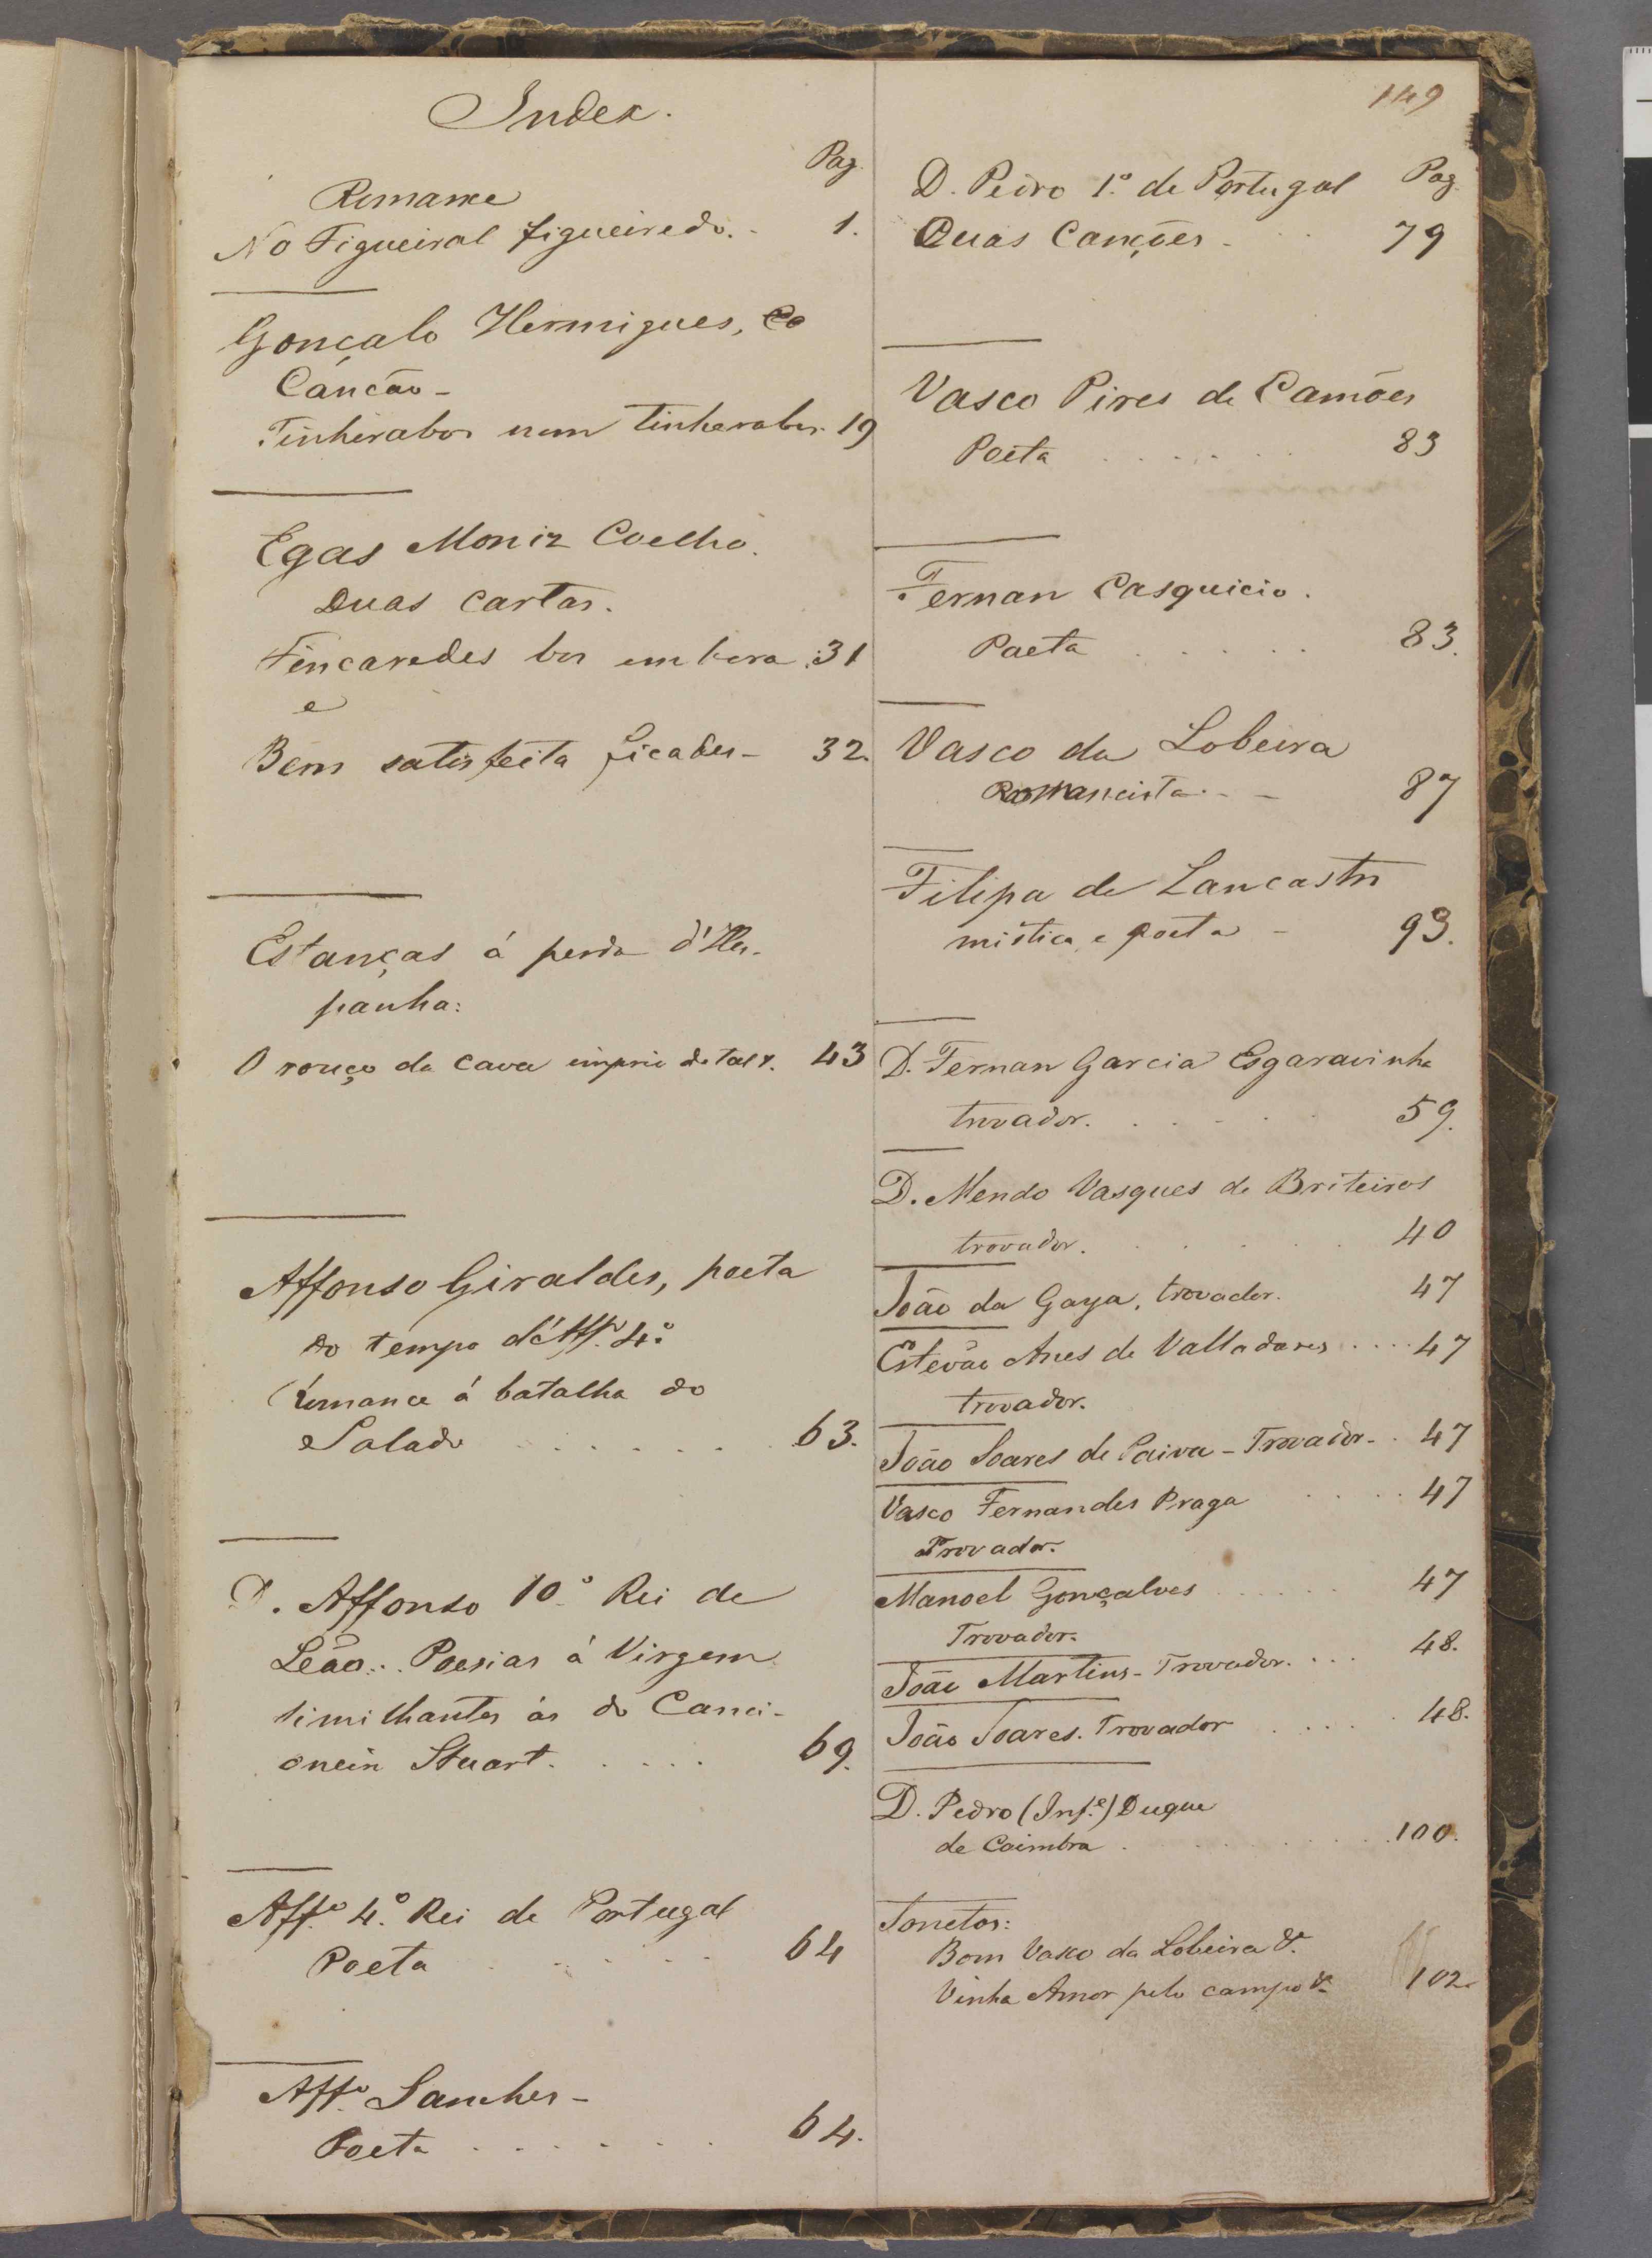 Index.
Pag.
Romance
No Figueiral figueiredo. - 1.
Gonçalo Hermigues,
Canção -
Tinherabos num tinherabos. 19
Egas Moniz Coelho.
Duas Cartas.
Fincaredes bos em bora . 31
e
Bem satisfeita ficades - 32.
Estanças á perda d'Hes-
panha:
O rouço da Cava imprio de tal &. 43
Affonso Giraldes, poeta
do tempo d'Aff.º 4.º
Romance á batalha do
Salado . . . . . . 63.
D. Affonso 10.º Rei de
Leão... Poesias á Virgem
similhantes ás do Canci-
oneiro Stuart. . . . . 69.
Aff.º 4.º Rei de Portugal
Poeta . . . . . 64
Aff.º Sanches -
Poeta . . . . . . 64.
149
D. Pedro 1.º de Portugal Pag.
Duas Canções - . . 79
Vasco Pires de Camões
Poeta . . . . . . 83
Fernan Casquicio.
Poeta . . . . . 83.
Vasco da Lobeira
Romancista - - 87
Filipa de Lancastro
mistica, e poeta - 93.
D. Fernan Garcia Esgaravinha
trovador. . . . . . 59.
D. Mendo Vasques de Briteiros
trovador. . . . . . 40
João da Gaya, trovador. 47
Estevão Anes de Valladares . . . . 47
trovador.
João Soares de Paiva - Trovador - . 47
Vasco Fernandes Praga . . . . 47
Trovador.
Manoel Gonçalves . . . . . 47
Trovador.
João Martins - Trovador. . . . 48.
João Soares. Trovador . . . . . 48.
D. Pedro (Inf.e) Duque
de Coimbra . . . . . . . . . 100.
Sonetos:
Bom Vasco da Lobeira &.
Vinha Amor pelo campo & 102.